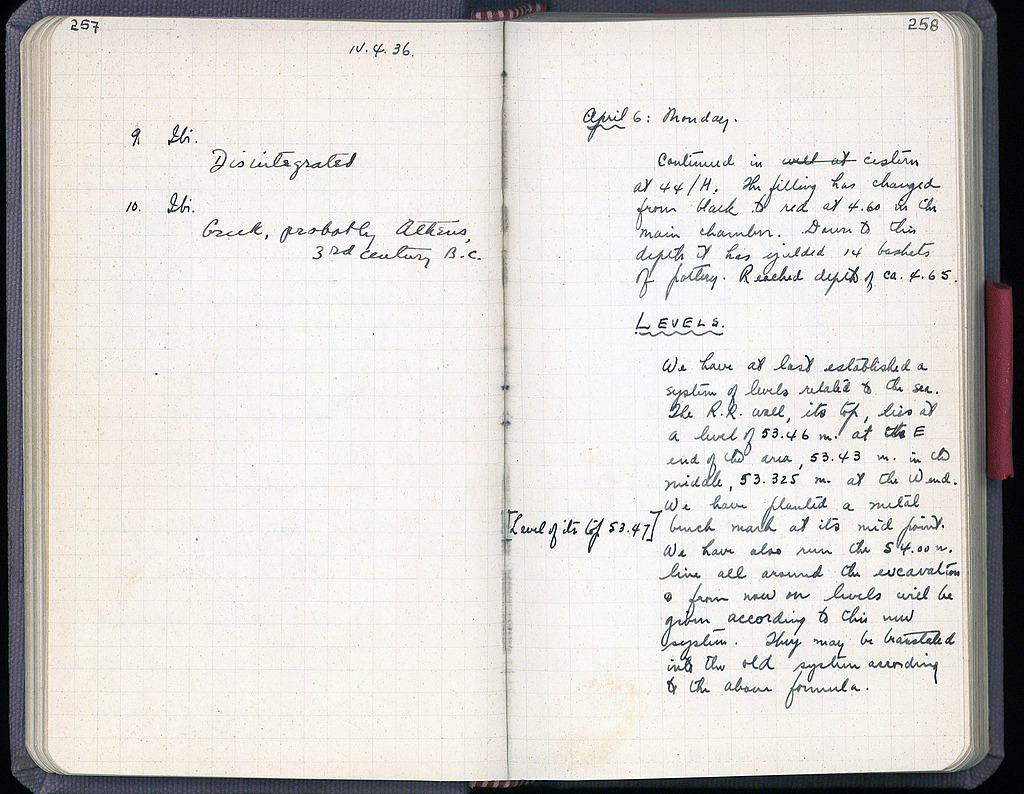 257
IV.4.36.
9. Ibi.
Disintegrated
10. Ibi.
Greek, probably Athens,
3rd century B.C.
258
April 6: Monday.
Continued in well at cistern
at 44/H. The filling has changed
from black to red at 4.60 in the
main chamber. Down to this
depth it has yielded 14 baskets
of pottery. Reached depth of ca. 4.65.
LEVELS.
We have at last established a
system of levels related to the sea.
The R.R. wall, its top, lies at
a level of 53.46 m. at the E
end of the area, 53.43 m. in the
middle, 53.325 m. at the W end.
We have planted a metal
[Level of its top 53.47] bench mark at its mid point.
We have also run the 54.00 m.
line all around the excavation
& from now on levels will be
given according to this new
system. They may be translated
into the old system according
to the above formula.